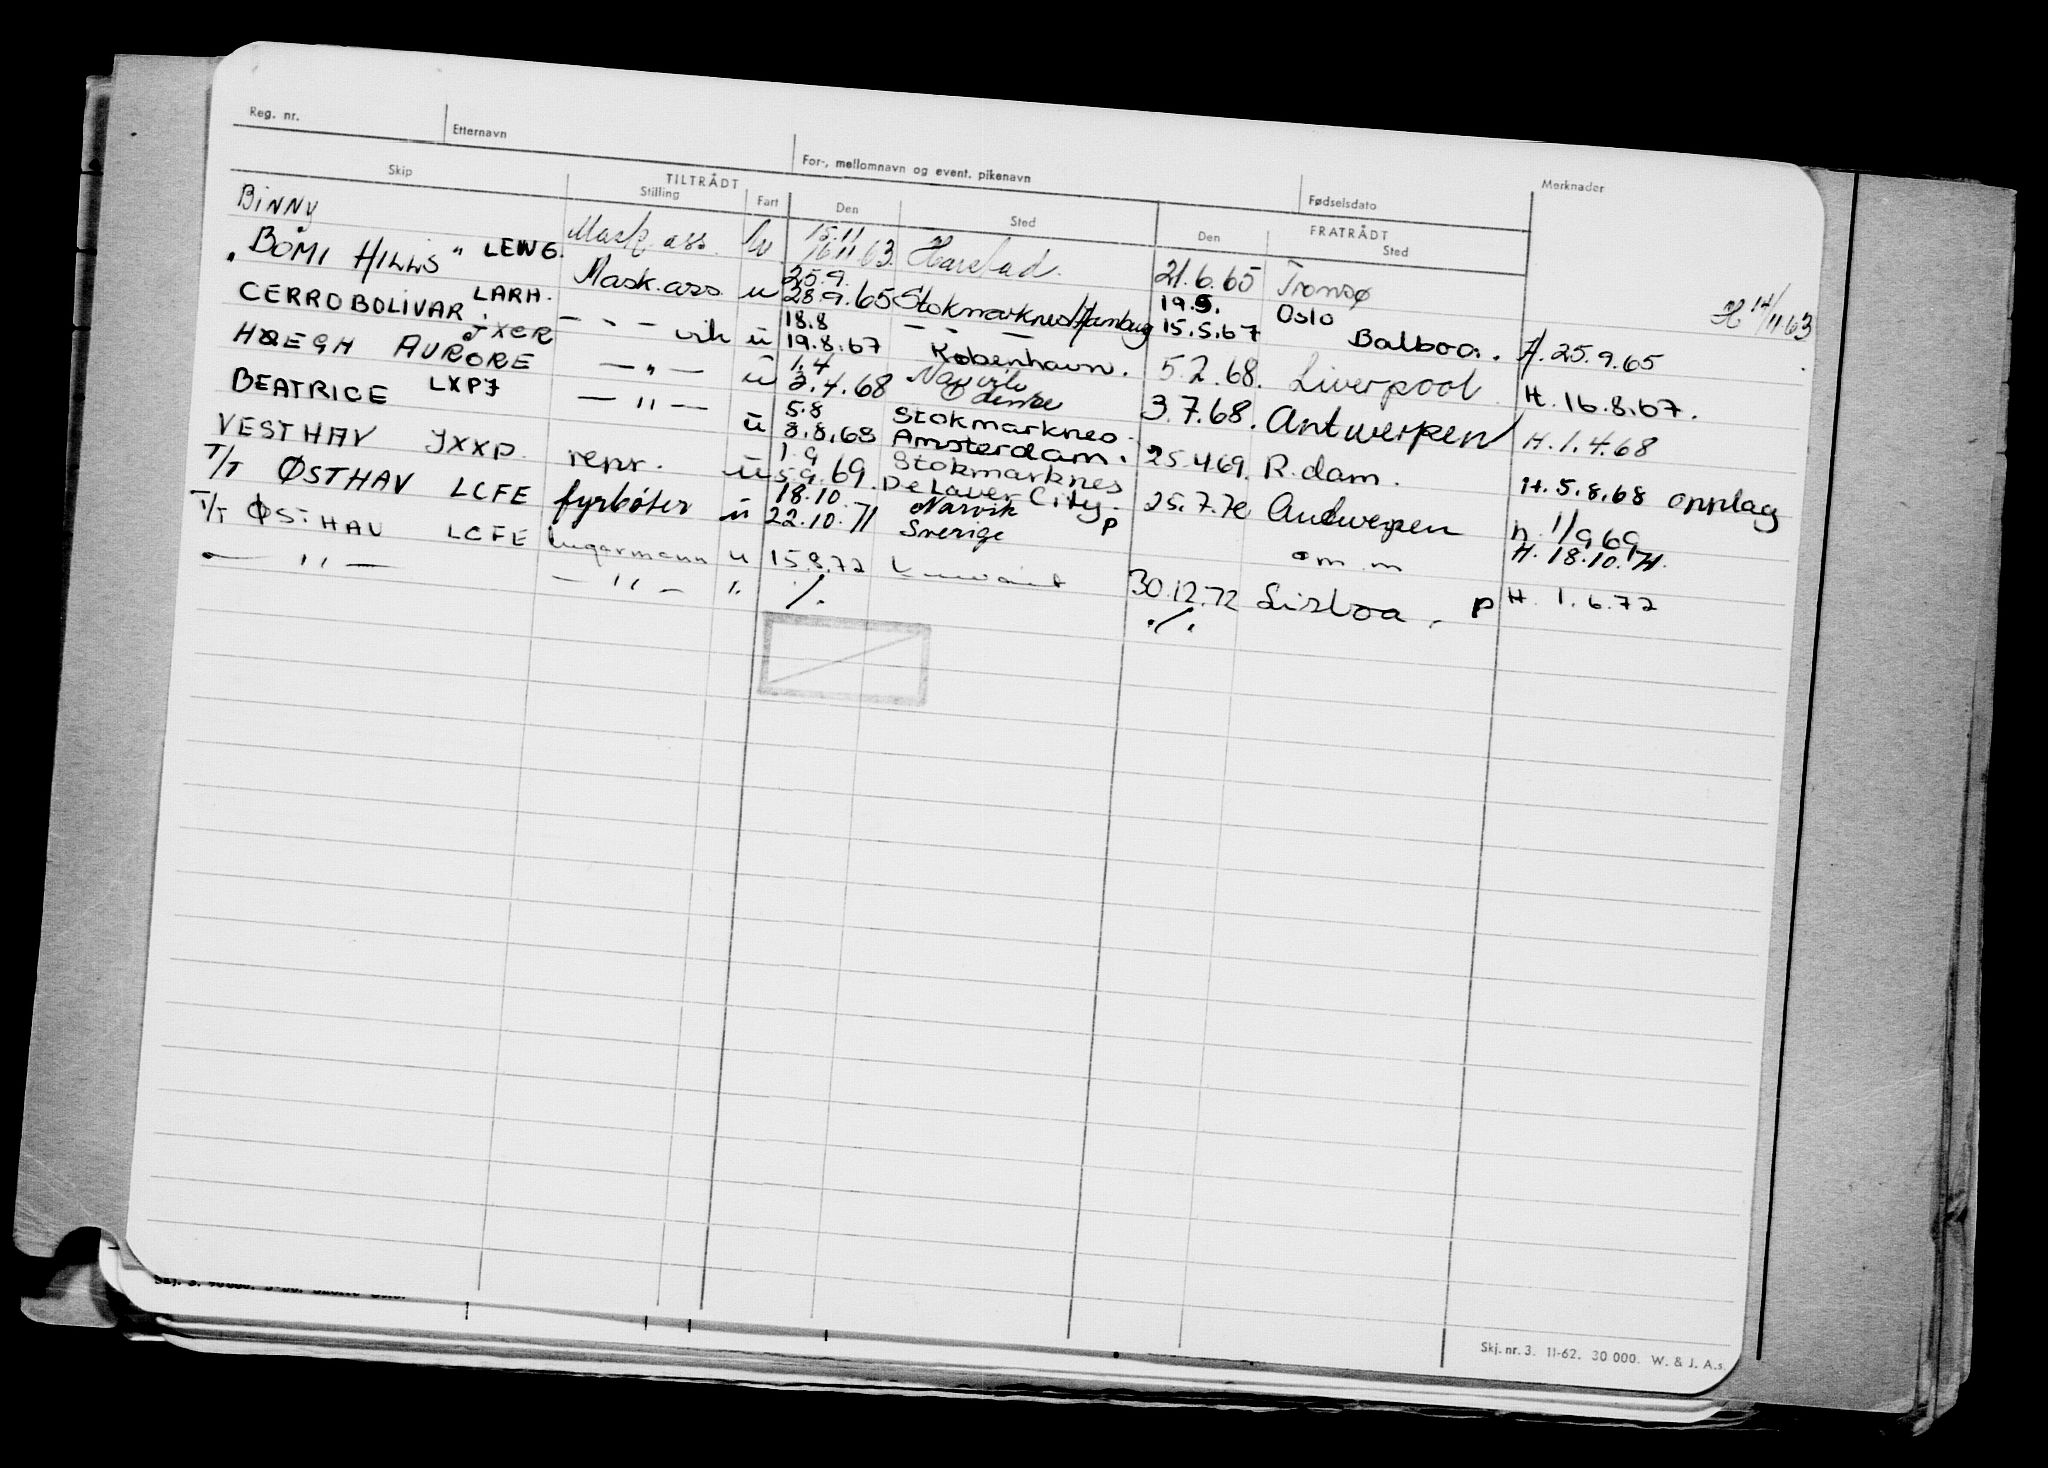 Reg. nr. Etternavn For-, mellomnavn og event. pikenavn Fødselsdato Merknader
Skip TILTRÅDT FRATRÅDT
Stilling Fart Den Sted Den Sted
H 14/11 63
Binny Mask. ass. 15.11 16.11 63. Harstad. 21.6.65 Tromsø
"BOMI HILLS" LEWG. Mask. ass. u 25.9. 28.9.65 Stokmarknes/Hamburg 19.5. 15.5.67 Oslo Balboa. H. 25.9.65
CERRO BOLIVAR LARH. — " — vik u 18.8 19.8.67 — " — København. 5.2.68. Liverpool H. 16.8.67.
HØEGH AURORE JXCR — " — u 1.4 3.4.68 Narvik 3.7.68. Antwerpen H. 1.4.68
BEATRICE LXPJ — " — u 5.8 8.8.68 Stokmarknes Amsterdam. 25.4.69. R.dam. H. 5.8.68 opplag
VESTHAV JXXP. repr. u 1.9 5.9.69. Stokmarknes Delaver City. 25.7.70 Antwerpen h. 1/9 69
T/T ØSTHAV LCFE fyrbøter u 18.10. 22.10.71 Narvik Sverige p om m H. 18.10.71.
T/T ØSTHAV LCFE lugarmann u 15.8.72 30.12.72 Lisboa. p H. 1.6.72
— " — — " — " ./. ./.
Skj. nr. 3. 11-62. 30 000. W. & J. A.s.